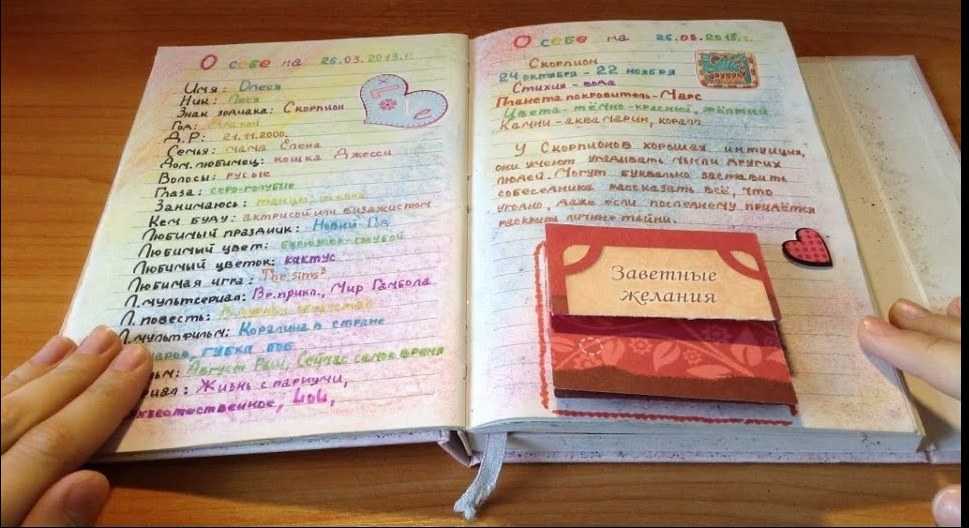 О себе на 26.03.2013.г.
Имя: Олеся
Ник: Леся
Знак зодиака: Скорпион
Год:
Д.Р: 21.11.2000.
Семья: мама Елена
Дом.любимец: кошка Джесси
Волосы: русые
Глаза: серо-голубые
Занимаюсь: танцы,
Кем буду: актрисой или визажистом
Любимый праздник: Новый Год
Любимый цвет: бирюзово-голубой
Любимый цветок: кактус
Любимая игра: The sims3
Л.мультсериал: Вр.прикл., Мир Гамбола
Л.повесть:
Л.мультфильм: Коралина в стране
губка боб
Август Раш, Сейчас самое время
Жизнь с париучи,

О себе на 26.03.2013.г.
Скорпион
24 октября - 22 ноября
Стихия - вода
Планета покровитель - Марс
Цвета тёмно-красный, жёлтый
Камни - аквамарин, коралл
У Скорпионов хорошая интуиция,
они умеют угадывать мысли других
людей. Могут буквально заставить
собеседника рассказать всё, что
угодно, даже если последнему придётся
раскрыть личные тайны.
Заветные
желания